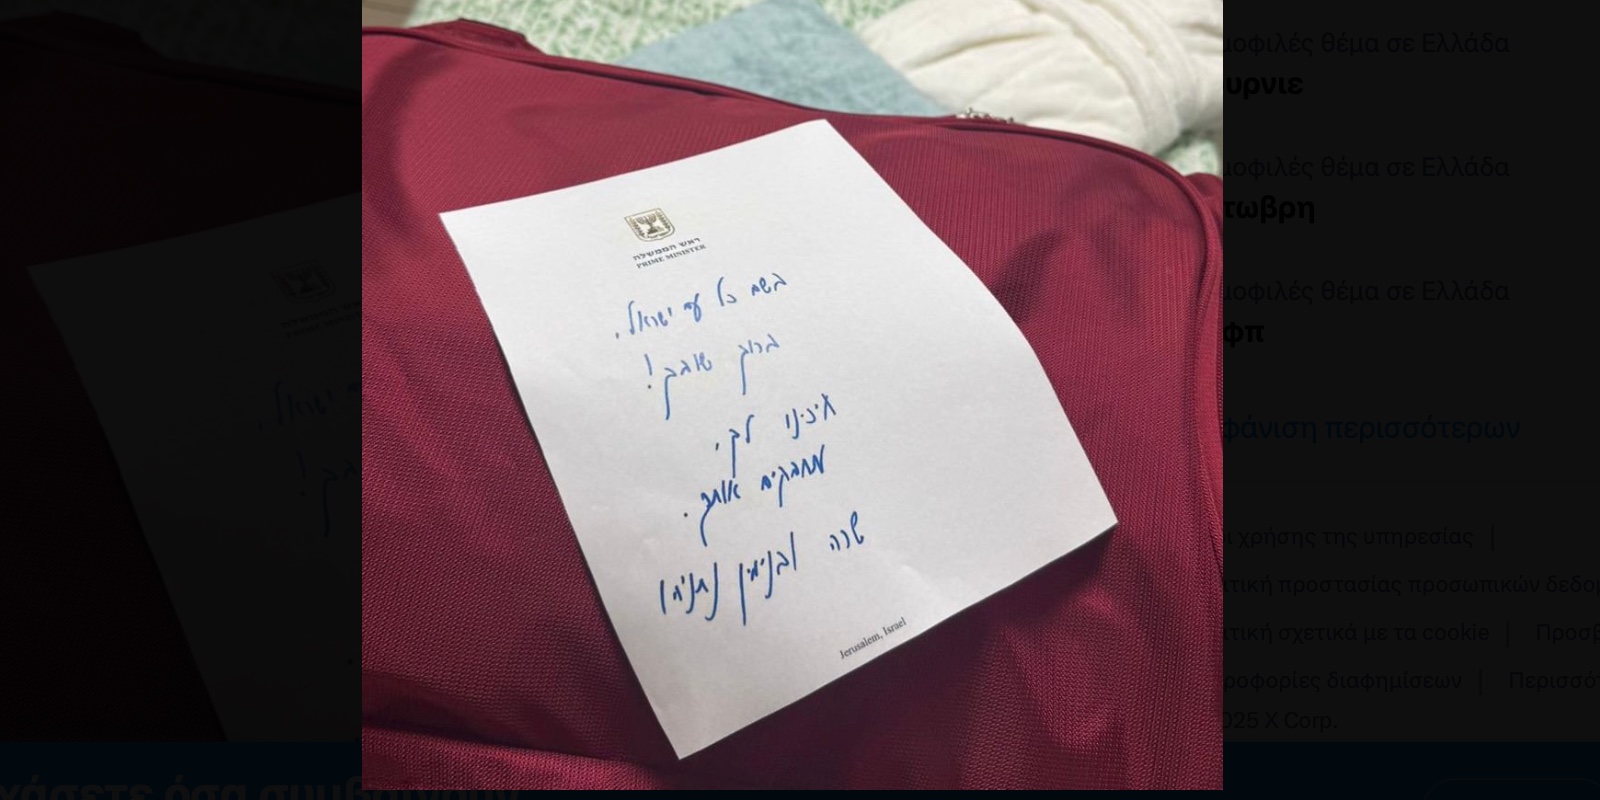 ראש הממשלה
PRIME MINISTER
בשם כל עם ישראל,
ברוך שובך!
חיכינו לך,
מחבקים אותך.
שרה ובנימין נתניהו
Jerusalem, Israel
οφιλές θέμα σε Ελλάδα
υρνιε
οφιλές θέμα σε Ελλάδα
τωβρη
οφιλές θέμα σε Ελλάδα
φπ
φάνιση περισσότερων
χρήσης της υπηρεσίας
τική προστασίας προσωπικών δεδο
τική σχετικά με τα cookie | Προσβ
ροφορίες διαφημίσεων | Περισσό
025 X Corp.
χάσετε όσα συμβαίνουν